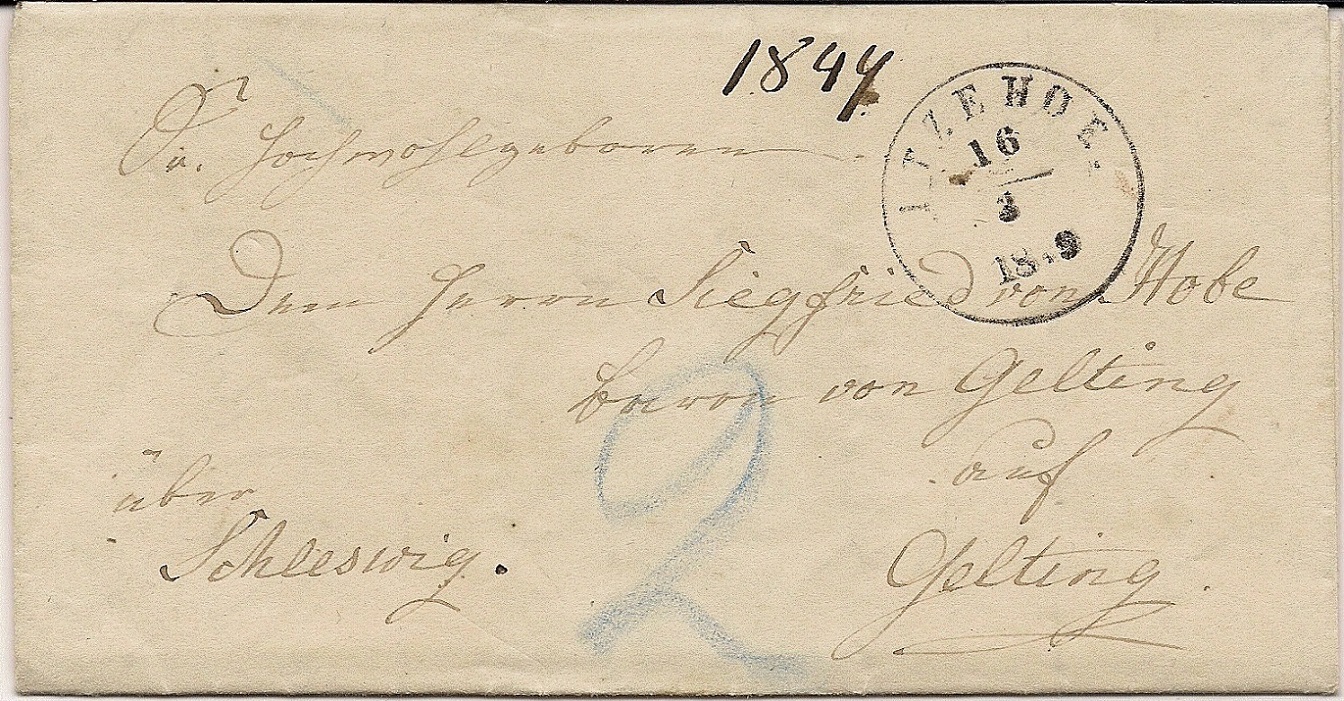 1844
ITZEHOE.
16
3
18 9
Sr. Hochwohlgeboren
Dem Herrn Siegfried von Hobe
Baron von Gelting
auf
Gelting.
über
Schleswig.
2